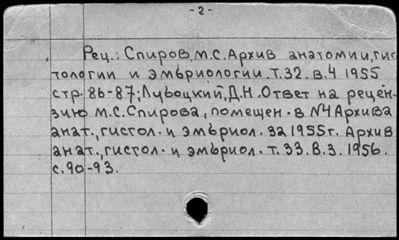 - 2 -
Рец.: Спиров, М.С. Архив анатомии, гис-
тологии и эмбриологии. Т.32. в.4 1955
стр. 86-87; Лубоцкий, Д.Н. Ответ на рецен-
зию М.С. Спирова, помещен. в №4 Архива
анат., гистол. и эмбриол. за 1955г. Архив
анат., гистол. и эмбриол. т.33. в.3. 1956.
с.90-93.